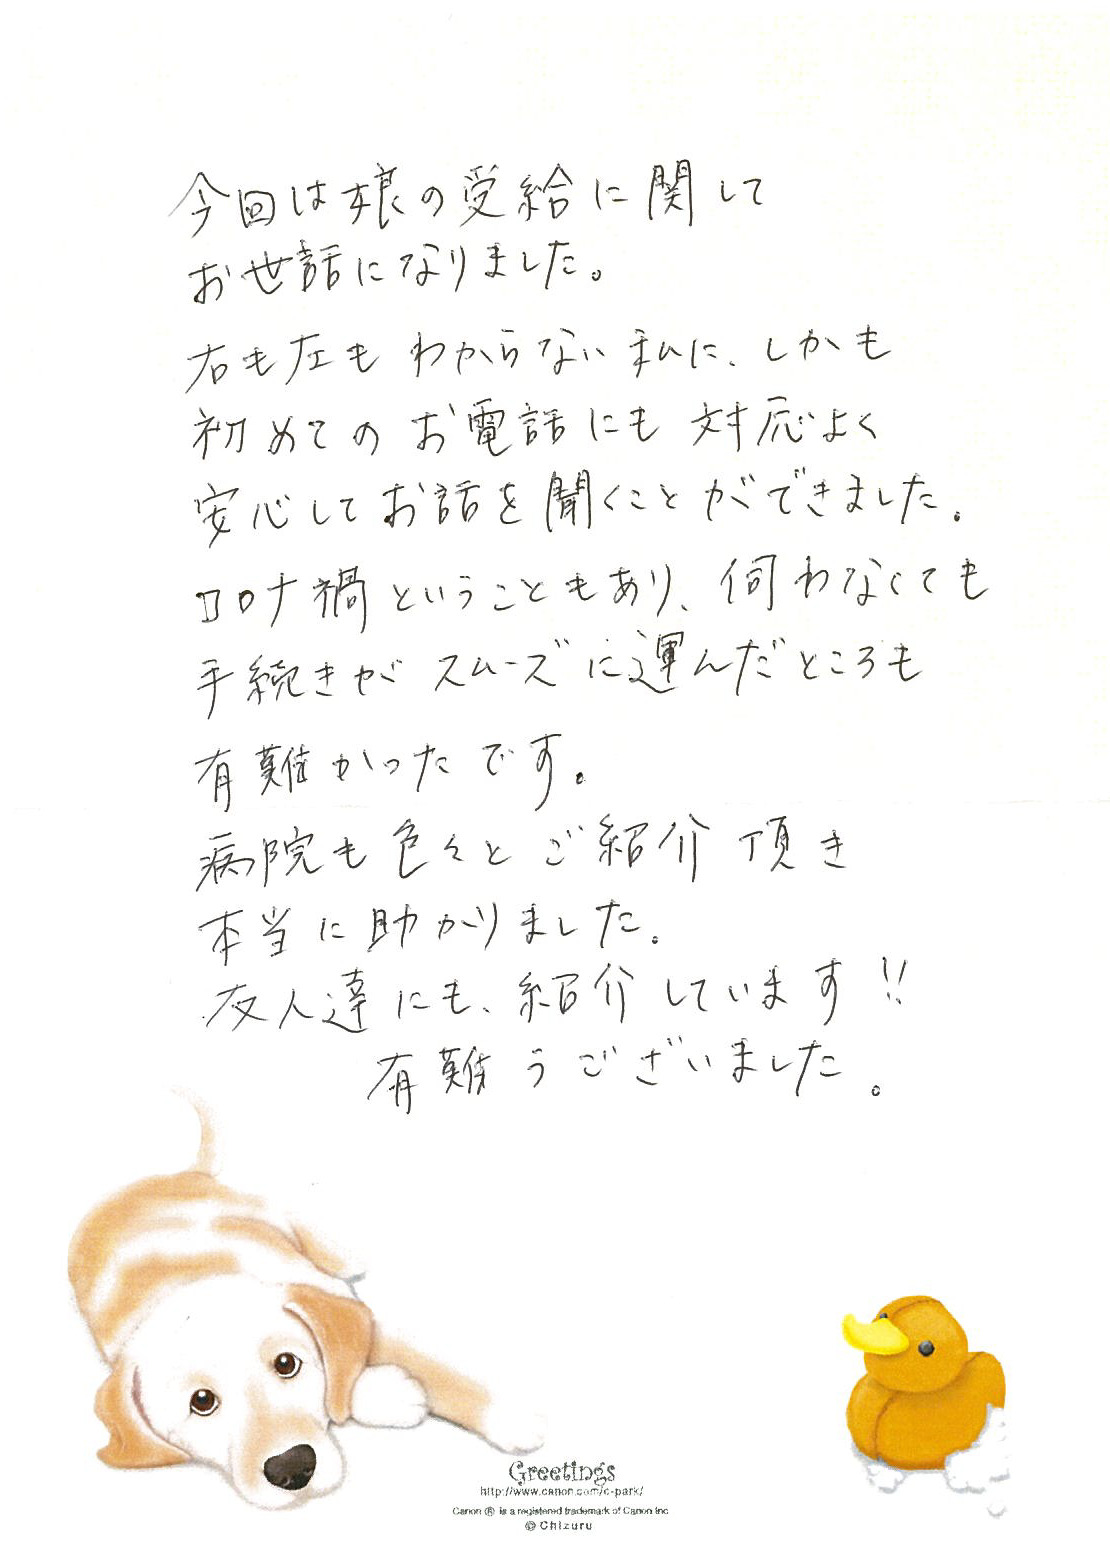 今回は娘の受給に関して
お世話になりました。
右も左もわからない私に、しかも
初めてのお電話にも対応よく
安心してお話を聞くことができました。
コロナ禍ということもあり、伺わなくても
手続きがスムーズに運んだところも
有難かったです。
病院も色々とご紹介頂き
本当に助かりました。
友人達にも、紹介しています!!
有難うございました。
Greetings
http://www.canon.com/c-park/
Canon ® is a registered trademark of Canon Inc
© Chizuru